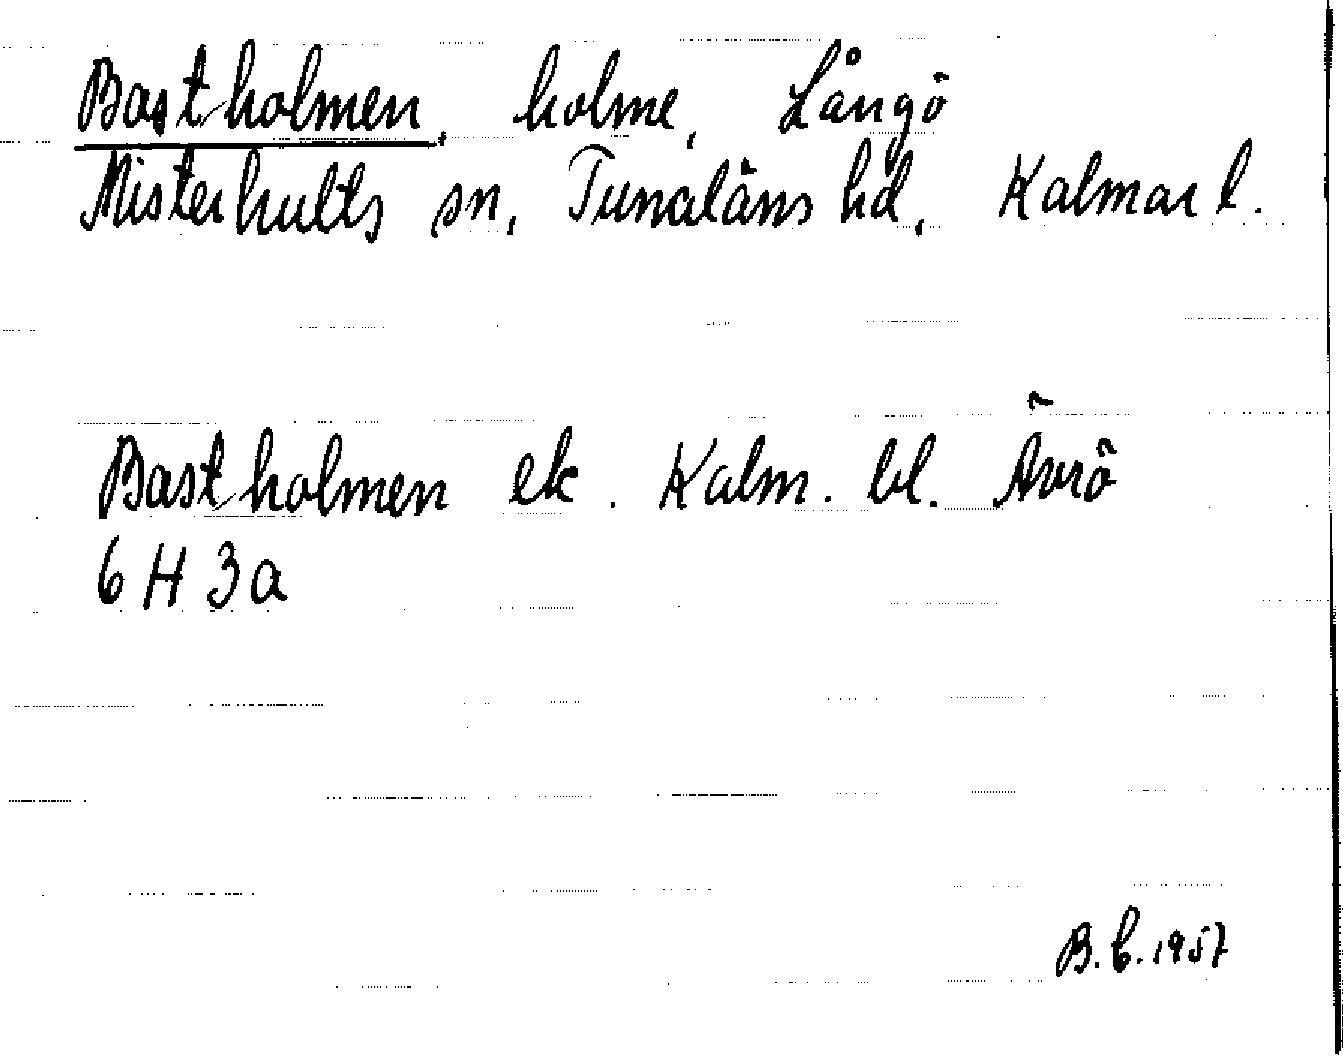 Bastholmen, holme, Långö
Misterhults sn, Tunaläns hd, Kalmar l.
Bastholmen ek. Kalm. bl. Ävrö
6 H 3a
B.C. 1957